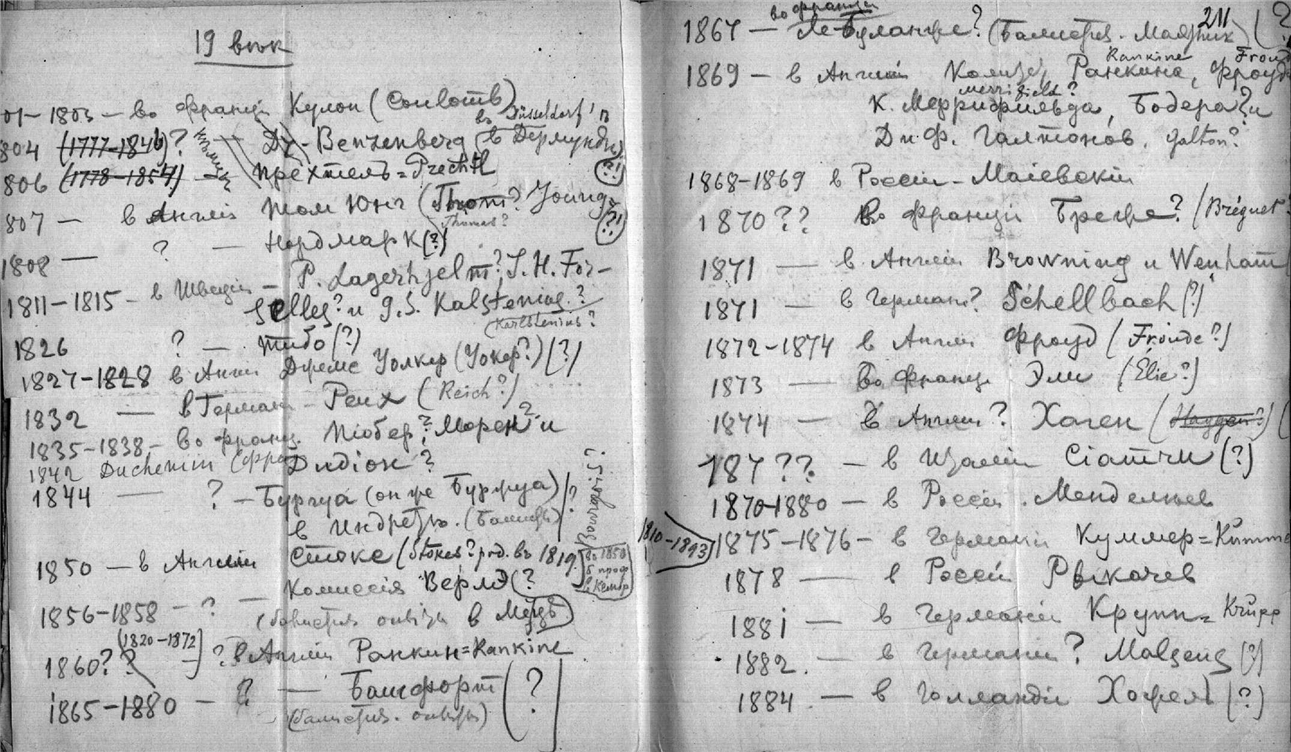 19 век
01–1803 – во Франц Кулон (Coulomb)
804 (1777–1846)? – Др. Benzenberg (в Дермунде)
в Düsseldorf'
806 (1778–1854) – Прехтель = Prechtl
807 – в Англ Том Юнг (Thom? Young
Thomas?
1808 – ? – Нордмарк (?)
1811–1815 – в Швец – P. Lagerhjelm? J. H. For-
selles? и G. S. Kalstenius?
(Karlstenius?
1826 ? – Тибо (?)
1827–1828 в Англ Джемс Уолкер (Уокер?) (?)
1832 – в Герман – Рейх (Reich?)
1835–1838 – во Франц. Пиобер?, Морен? и
Дидіон?
1842 Duchemin (фра
1844 – ? – Бургуа (он же Буржуа) ?
Bourgois?
в Индретъ. (Балист
1850 – в Англіи Стокс (Stokes? род. въ 1819.
въ 1850
б. проф
в Кембр
1856–1858 – ? – Комиссія Верлэ (?
(балистич. опыты в Мецѣ)
(1820–1872)
1860?? ? в Англіи Ранкин = Rankine
1865–1880 – ? – Башфорт (?)
(балистич. опыты)
211
во Франціи
1867 – Ле-Буланже? (Балистич. Маятник) (?
Rankine Froud
1869 – в Англіи Комис, Ранкина, Фроуда
Merrifield?
К. Меррифильда, Бодера? и
Дк. Ф. Галтонов. Galton?
1868–1869 в Россіи – Маіевскій
1870?? Во Франціи Бреге? (Bréguet?
1871 – в Англіи Browning и Wenham
1871 – в Герман? Schellbach (?)
1872–1874 в Англіи Фроуд (Froude?)
1873 – Во Франц Эли (Elie?)
1874 – в Англіи? Хаген (Haggen?) (
187?? – в Италіи Сіаччи (?)
1870–1880 – в Россіи. Менделѣев
1810–1893
1875–1876 – в Германіи Куммер = Kumme
1878 – в Россіи Рыкачев
1881 – в Германіи Крупп = Krupp
1882. – в Германіи? (?)
1884 – в Голландіи (?)